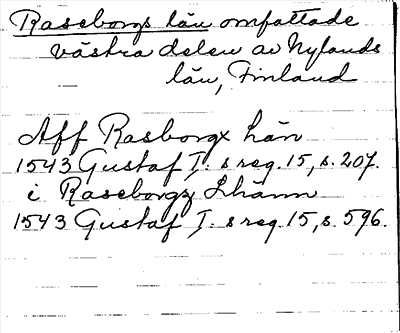 Raseborgs län omfattade
västra delen av Nylands
län, Finland
Aff Rasborgx hän
1543 Gustaf I:s reg. 15, s. 207.
i Raseborgz Lhänn
1543 Gustaf I:s reg. 15, s. 596.